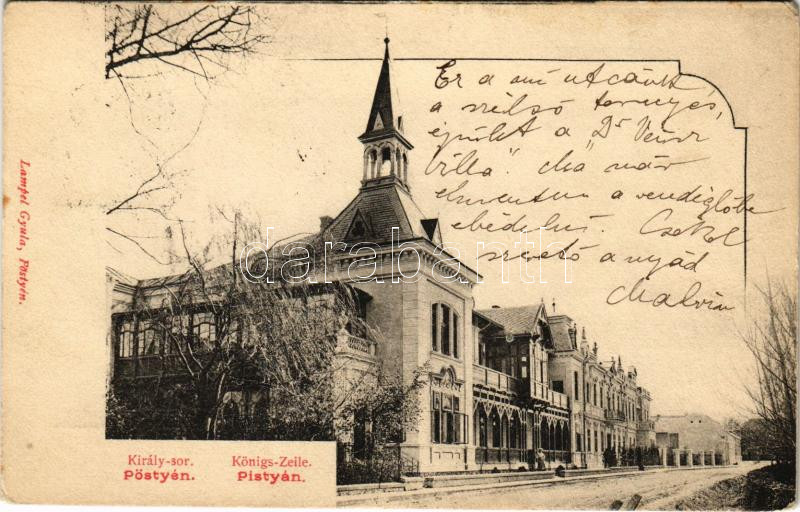 Ez a mi utcánk
a szélső tornyos,
épület a "Dr Veisz
Villa". Ma már
elmentem a vendéglőbe
ebédelni. Csókol
szerető anyád
Malvin
darabanth
Lampel Gyula, Pöstyén.
Király-sor. Königs-Zeile.
Pöstyén. Pistyán.